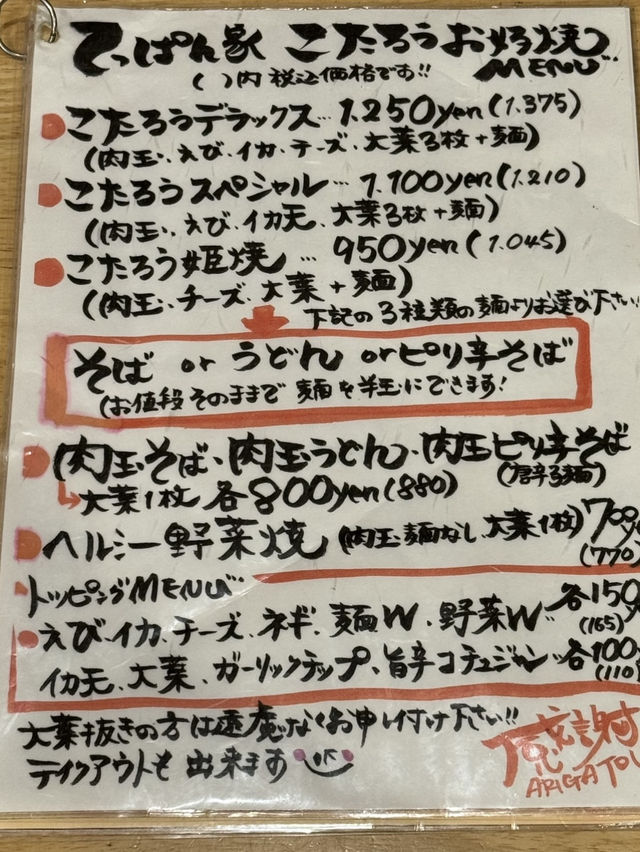 てっぱん家 こたろうお好焼
MENU
( )内 税込価格です!!
こたろうデラックス… 1.250yen(1.375)
(肉玉、えび、イカ、チーズ、大葉3枚+麺)
こたろうスペシャル … 1.100yen(1.210)
(肉玉、えび、イカ天、大葉3枚+麺)
こたろう姫焼 … 950yen(1.045)
(肉玉、チーズ、大葉+麺)
下記の3種類の麺よりお選び下さい!
そば or うどん orピリ辛そば
(お値段そのままで 麺を半玉にできます!
肉玉そば、肉玉うどん、肉玉ピリ辛そば
(唐辛子麺)
大葉1枚 各800yen(880)
ヘルシー野菜焼 (肉玉 麺なし 大葉1枚) 700y
(770)
トッピングMENU
えび、イカ、チーズ、ネギ、麺W、野菜W… 各150
(165)
イカ天、大葉、ガーリックチップ、旨辛コチュジャン… 各100y
(110)
大葉抜きの方は遠慮なくお申し付け下さい!!
テイクアウトも出来ます OK
感謝
ARIGATOU